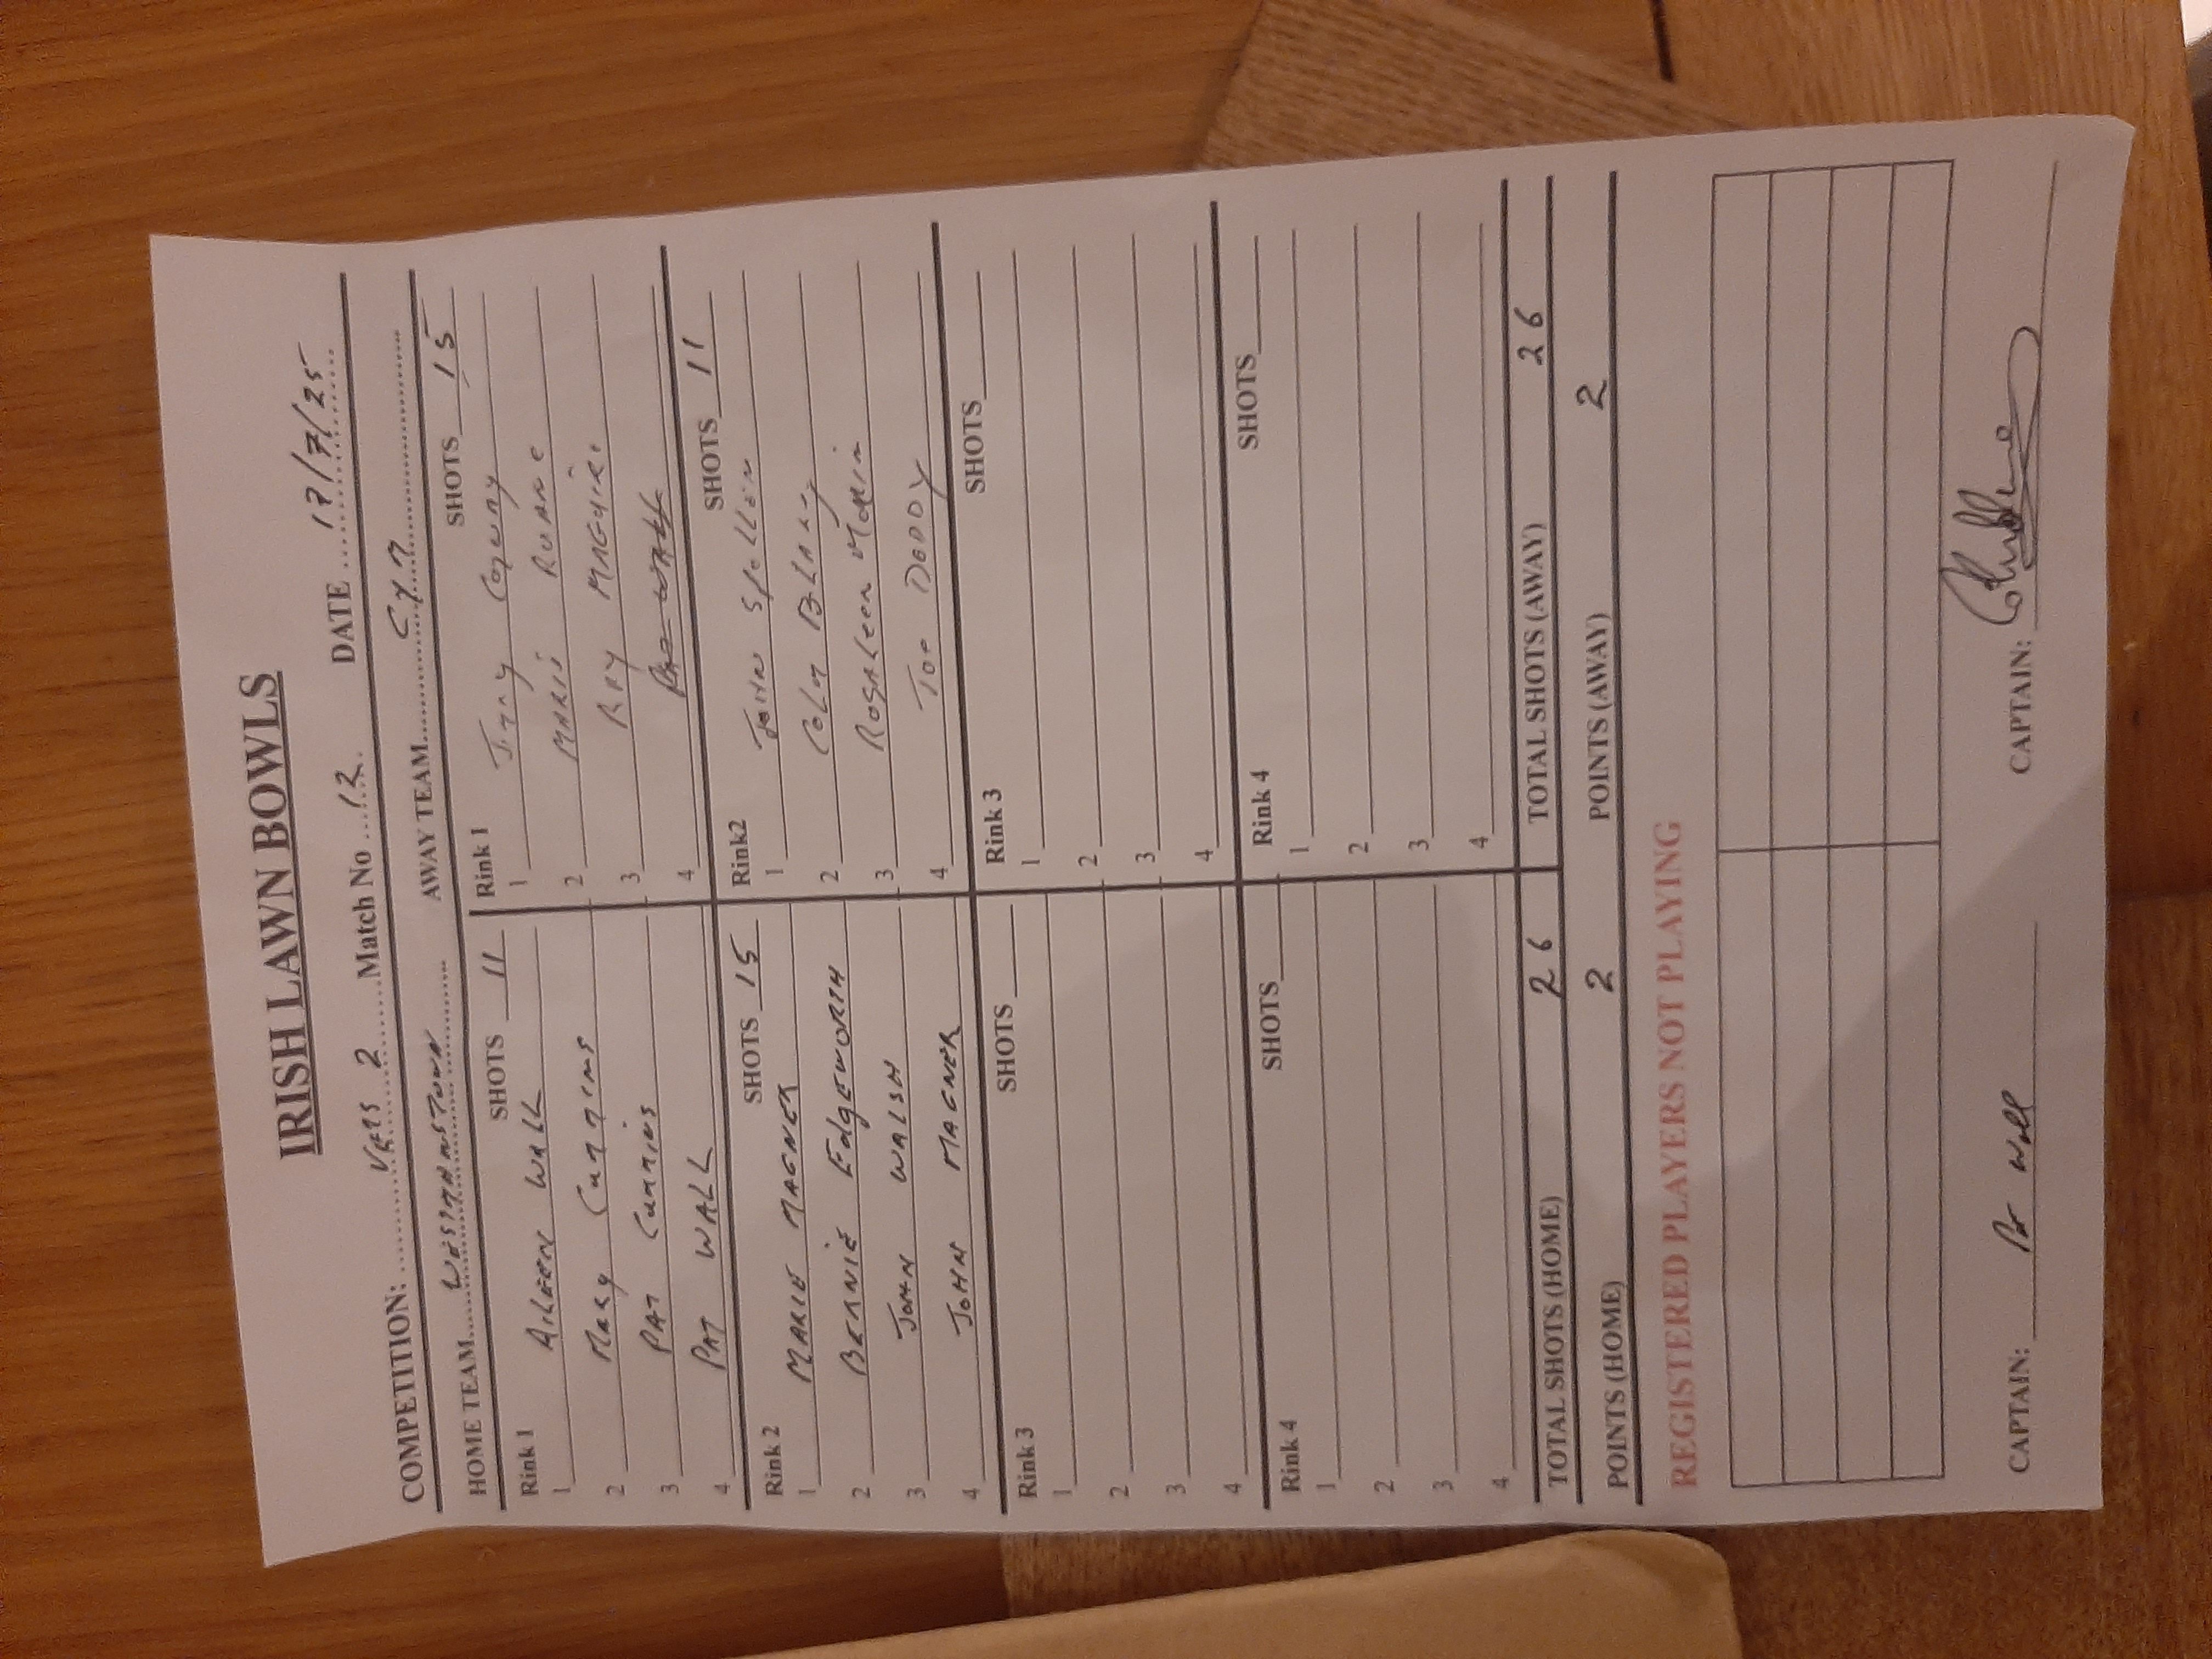 IRISH LAWN BOWLS
COMPETITION: VETS 2 Match No 12 DATE 17/7/25
HOME TEAM WESTMANSTOWN AWAY TEAM CYM
Rink 1 SHOTS 11
1 AILEEN WALL
2 MARY CUMMINS
3 PAT CUMMINS
4 PAT WALL
Rink 1 SHOTS 15
1
2 MARIE RUANE
3 RAY MAGUIRE
4
Rink 2 SHOTS 15
1 MARIE MAGNER
2 BERNIE EDGEWORTH
3 JOHN WALSH
4 JOHN MAGNER
Rink2 SHOTS 11
1 JOHN SPOLLEN
2 COLM
3 ROSALEEN
4
Rink 3 SHOTS
1
2
3
4
Rink 3 SHOTS
1
2
3
4
Rink 4 SHOTS
1
2
3
4
Rink 4 SHOTS
1
2
3
4
TOTAL SHOTS (HOME) 26 TOTAL SHOTS (AWAY) 26
POINTS (HOME) 2 POINTS (AWAY) 2
REGISTERED PLAYERS NOT PLAYING
CAPTAIN: Pat Wall CAPTAIN: